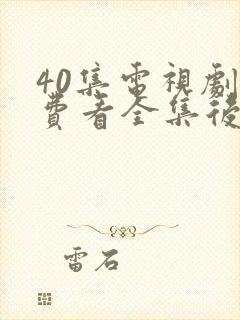 40集電視劇
費看全集後
雷石